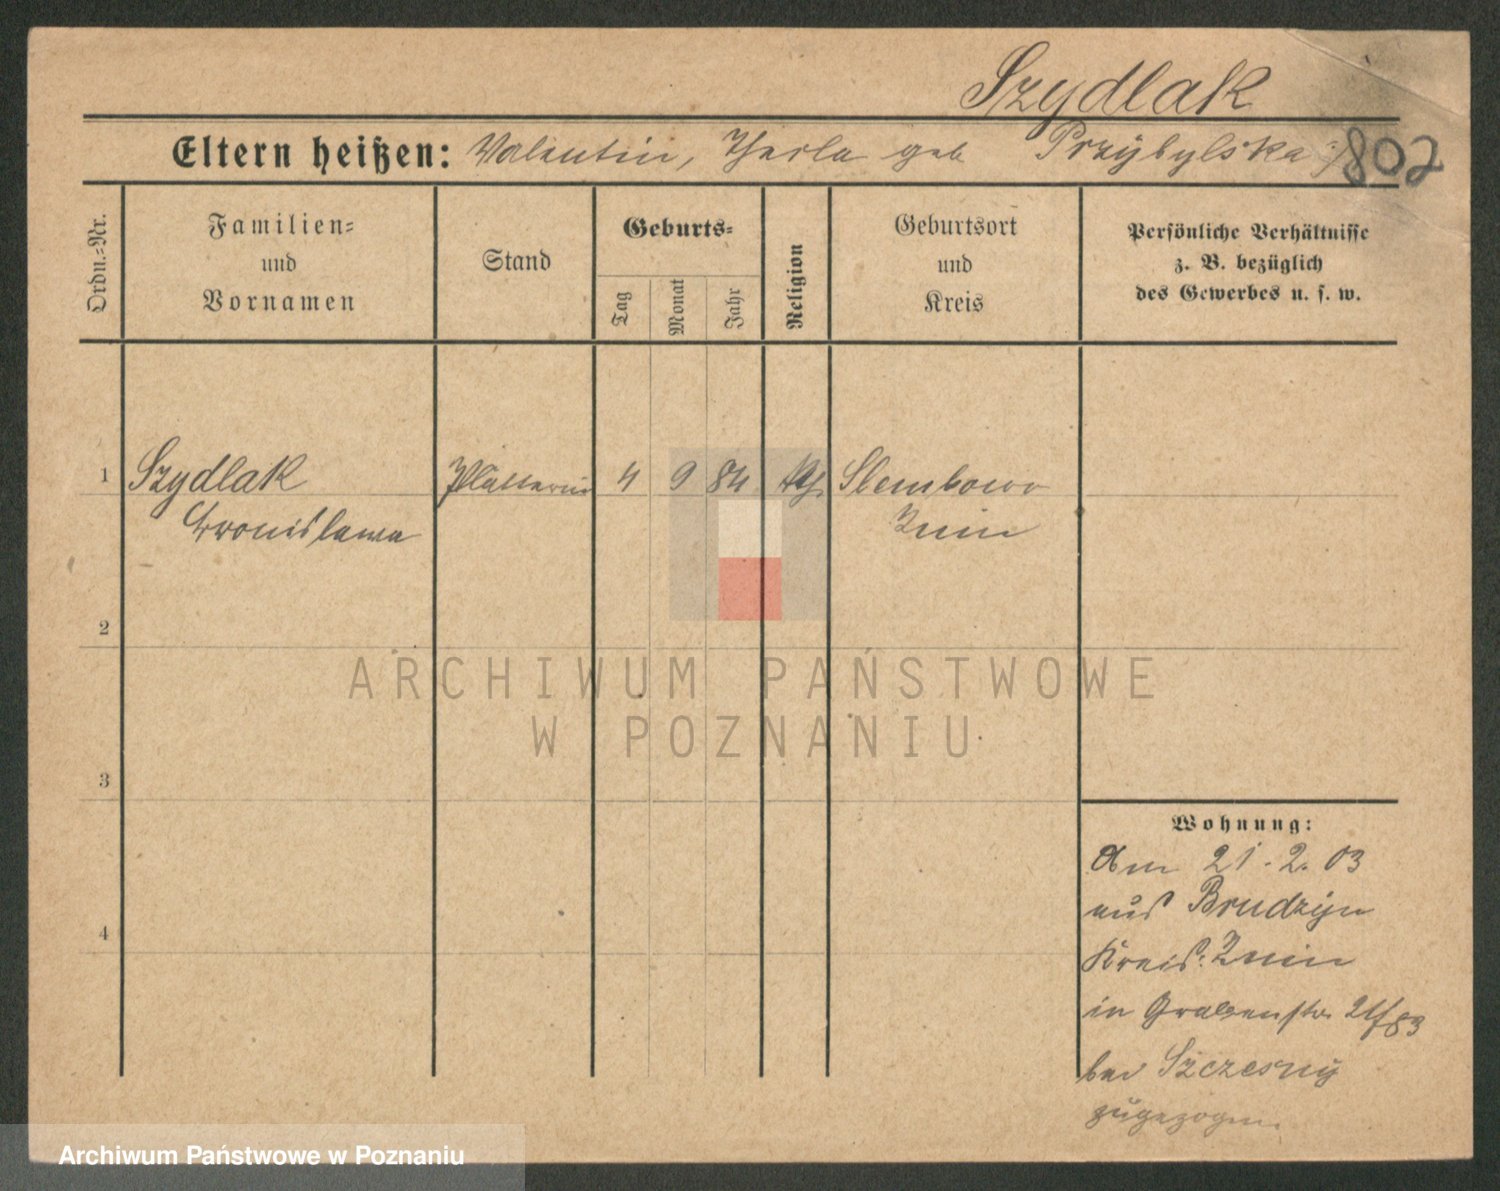 Szydlak
Eltern heißen: Valentin, Thecla geb Przybylska
802
Ordn.-Nr.
Familien-
und
Vornamen
Stand
Geburts-
Tag
Monat
Jahr
Religion
Geburtsort
und
Kreis
Persönliche Verhältnisse
z. B. bezüglich
des Gewerbes u. s. w.
1 Szydlak Plätterin 4 9 84 kth Slembowo
Bronislawa Znin
2
ARCHIWUM PAŃSTWOWE
W POZNANIU
3
Wohnung:
Am 21.2.03
aus Brudzyn
4
Kreis: Znin
in Grabenstr.
bei Szczesny
zugezogen.
Archiwum Państwowe w Poznaniu